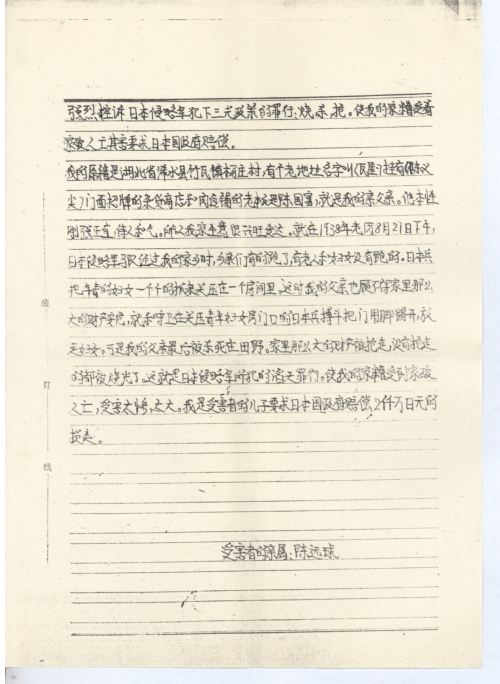 强烈控诉日本侵略军犯下三光政策的罪行、烧、杀、抢。使我的家精受着
家破人亡其害要求日本国政府赔偿。
我的原籍是湖北省浠水县竹瓦镇柯庄村,有个老地址名字叫
门面挂牌的杂货商店和肉的老板是陈国富,就是我的亲父亲。他本性
刚强正直,待人和气。所以我家生意兴旺发达。就在1938年老历8月21日下午,
日本侵略军队经过我的家乡时,乡亲们有的跑了,有老人和妇女没有跑的。日本兵
把年青的妇女一个个的抓来关压在一个房间里。这时我的父亲也顾不得家里那么
大的财产安危,就和守卫在关压青年妇女房门口的日本兵搏斗把门用脚踢开,放
走妇女。可是我的父亲最后被杀死在田野。家里那么大的财产被抢走,没有抢走
的都被烧光了。这就是日本侵略军所犯的滔天罪行。使我的家精受到家破
人亡,受害太惨,太大。我是受害者的儿子要求日本国政府赔偿2仟万日元的
损失。
受害者的亲属:陈远球
装
订
线